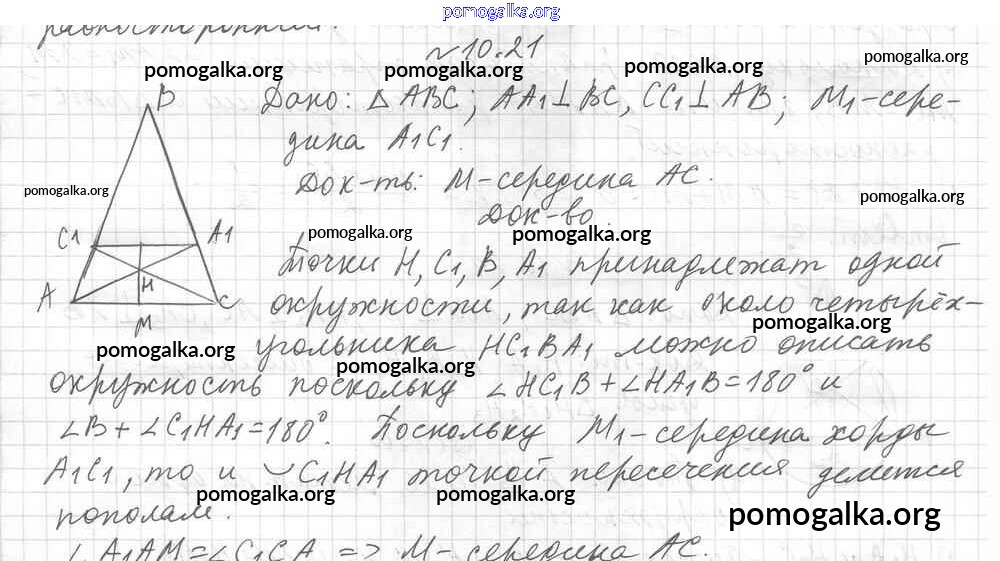 pomogalka.org
равносторонний.
№10.21
pomogalka.org pomogalka.org pomogalka.org pomogalka.org
B
Дано: △ABC; AA1⊥BC, CC1⊥AB; M1-сере-
дина A1C1.
pomogalka.org
Док-ть: M-середина AC.
pomogalka.org
Док-во.
C1 A1
pomogalka.org pomogalka.org
Точки H, C1, B, A1 принадлежат одной
H
A C
окружности, так как около четырёх-
M
pomogalka.org
угольника HC1BA1 можно описать
pomogalka.org
pomogalka.org
окружность поскольку ∠HC1B+∠HA1B=180° и
∠B+∠C1HA1=180°. Поскольку M1-середина хорды
A1C1, то и ◡C1HA1 точкой пересечения делится
pomogalka.org pomogalka.org
пополам.
pomogalka.org
∠A1AM=∠C1CA => M-середина AC.